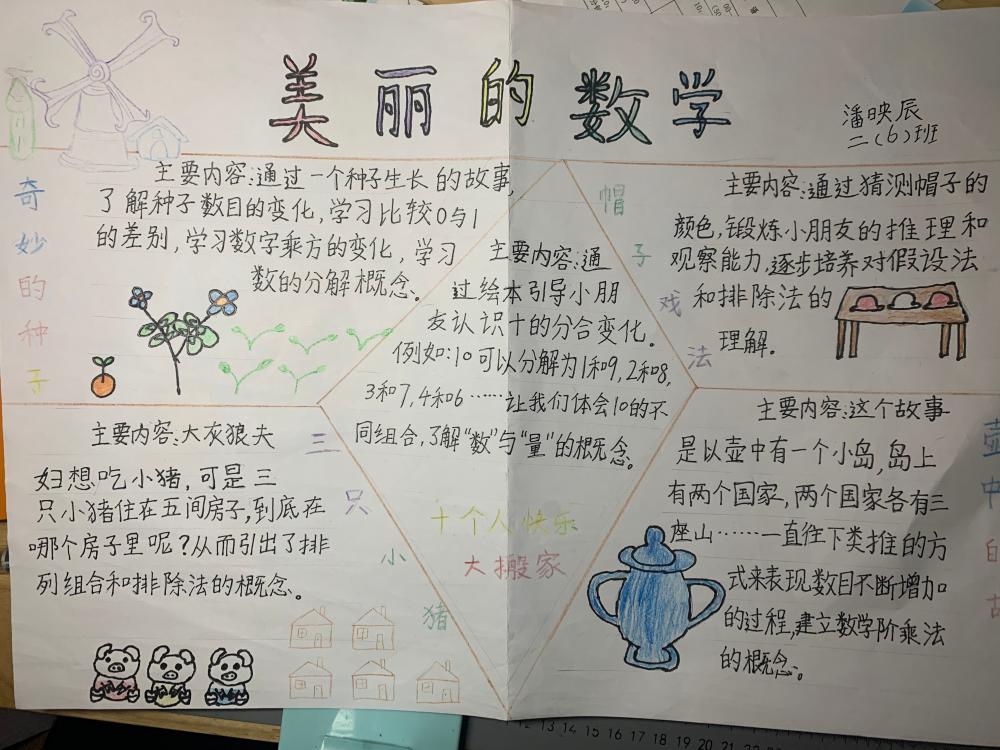 美丽的数学
潘映辰
二(6)班
奇妙的种子
主要内容:通过一个种子生长的故事,
了解种子数目的变化,学习比较0与1
的差别,学习数字乘方的变化,学习
数的分解概念。
帽子戏法
主要内容:通过猜测帽子的
颜色,锻炼小朋友的推理和
观察能力,逐步培养对假设法
和排除法的
理解。
主要内容:通
过绘本引导小朋
友认识十的分合变化。
例如:10可以分解为1和9,2和8,
3和7,4和6……让我们体会10的不
同组合,了解“数”与“量”的概念。
十个人快乐
大搬家
三只小猪
主要内容:大灰狼夫
妇想吃小猪,可是三
只小猪住在五间房子,到底在
哪个房子里呢?从而引出了排
列组合和排除法的概念。
壶中的故
主要内容:这个故事
是以壶中有一个小岛,岛上
有两个国家,两个国家各有三
座山……一直往下类推的方
式来表现数目不断增加
的过程,建立数学阶乘法
的概念。
12 13 14 15 16 17 18 19 20 21 22